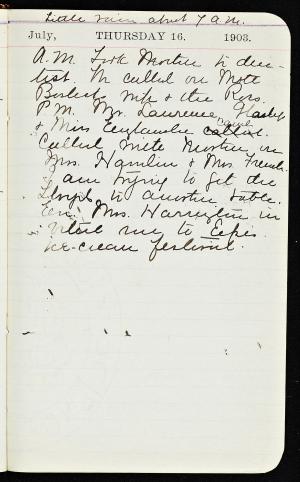 Little rain about 7 A.M.
July, THURSDAY 16. 1903.
A.M. Took Mortie to den-
tist. He called on Mott
wife & the
P.M. Mr. Laurence
& Miss came
called.
Called with Mortie on
Mrs. Hamlin & Mrs. French.
I am trying to get the
to another table.
Eve. Mrs. Harrington in
vited me to
ice-cream festival.